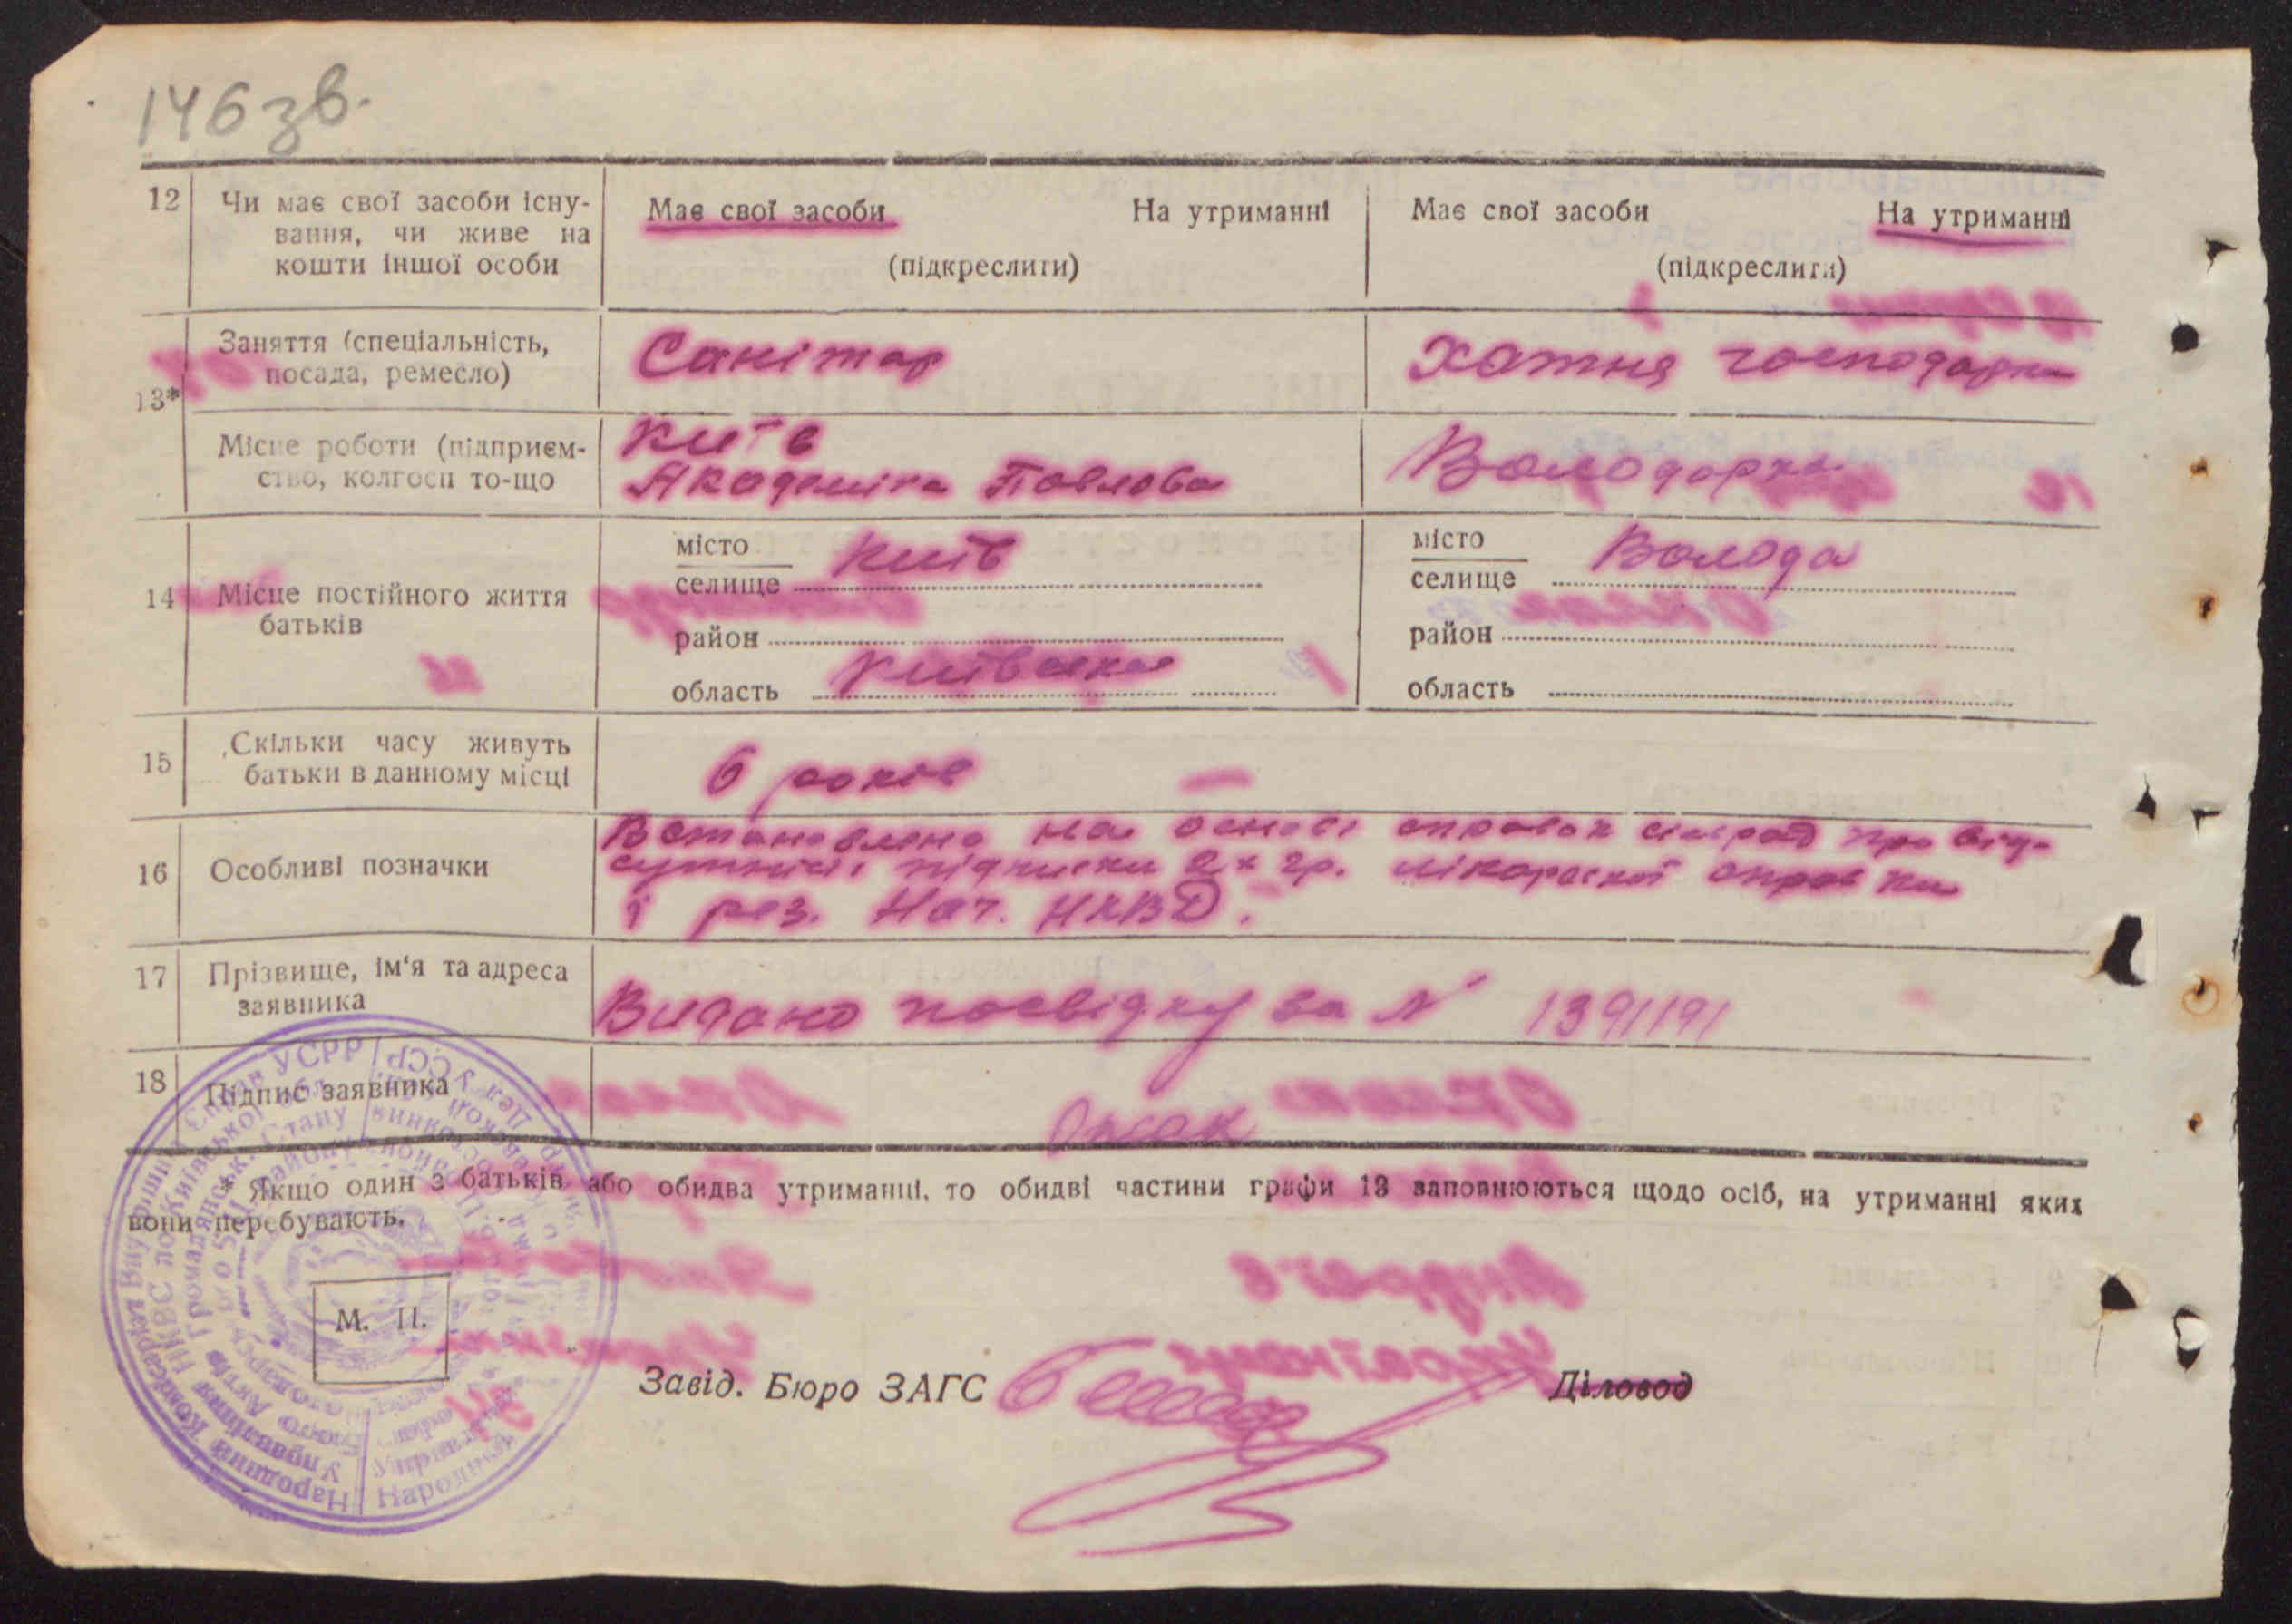 146 зв.
12 Чи має свої засоби існу-
вання, чи живе на
кошти іншої особи
Має свої засоби На утриманні
(підкреслити)
Має свої засоби На утриманні
(підкреслити)
13*
Заняття (спеціальність,
посада, ремесло)
Санітар
Хатня господарка
Місце роботи (підприєм-
ство, колгосп то-що
Київ
Академіка Павлова
Володарка
14 Місце постійного життя
батьків
місто
селище Київ
район
область Київська
місто
селище Волода
район
область
15 Скільки часу живуть
батьки в данному місці
6 років
16 Особливі позначки
Встановлено на основі справок про від-
сутність підписки 2х гр. лікарської справки
і рез. Нач. НКВД.
17 Прізвище, ім'я та адреса
заявника
Видано посвідку за № 1391191
18 Підпис заявника
* Якщо один з батьків або обидва утриманці, то обидві частини графи 13 заповнюються щодо осіб, на утриманні яких
вони перебувають.
М. П.
Завід. Бюро ЗАГС Діловод